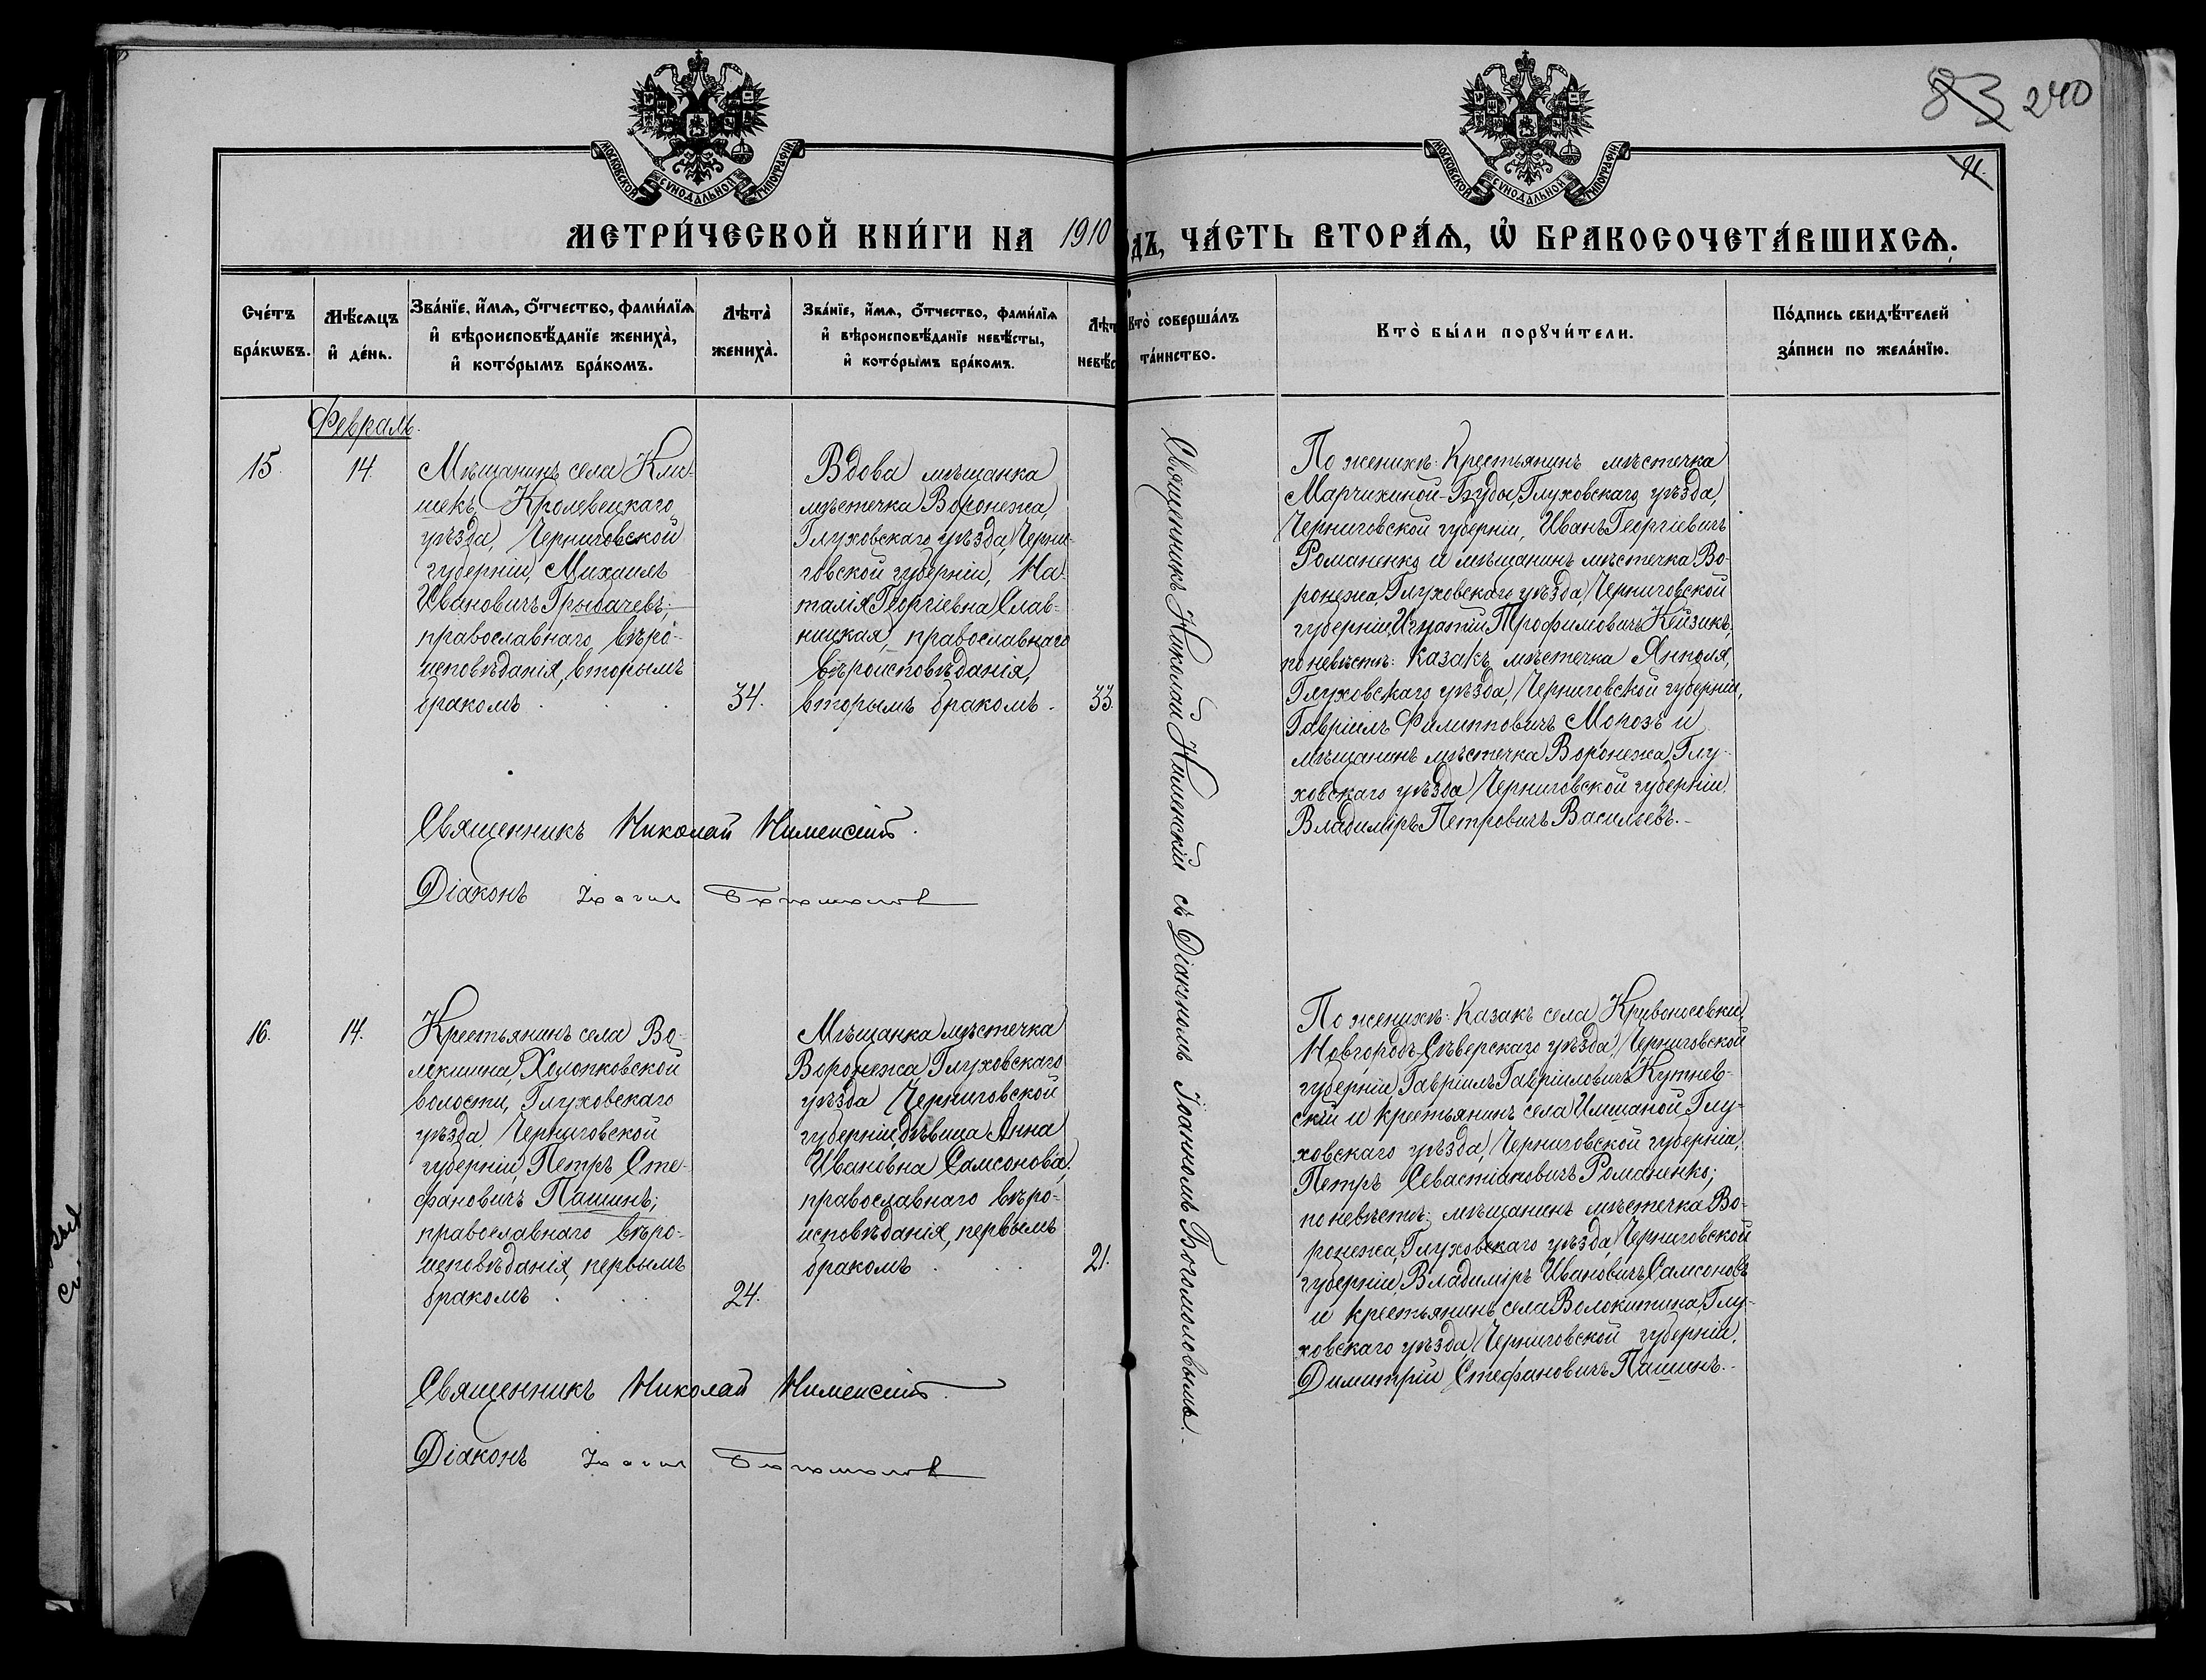 МОСКОВСКОЙ СУНОДАЛЬНОЙ ТИПОГРАФІИ
МОСКОВСКОЙ СУНОДАЛЬНОЙ ТИПОГРАФІИ
83 240
91.
МЕТРИ́ЧЕСКОЙ КНИ́ГИ НА 1910
ОДЪ, ЧА́СТЬ ВТОРА́Я, Ѡ БРАКОСОЧЕТА́ВШИХСЯ.
Сче́тъ
бра́кѡвъ.
Мѣ́сяцъ
и҆ де́нь.
Зва́нїе, и҆́мя, ѻ҆́тчество, фами́лїя
и҆ вѣроисповѣ́данїе жениха̀,
и҆ кото́рымъ бра́комъ.
Лѣта̀
жениха̀.
Зва́нїе, и҆́мя, ѻ҆́тчество, фами́лїя
и҆ вѣроисповѣ́данїе невѣ́сты,
и҆ кото́рымъ бра́комъ.
Лѣт
невѣ́с
Кто̀ соверша́лъ
та́инство.
Кто̀ бы́ли порꙋчи́тели.
По́дпись свидѣ́телей
за́писи по жела́нїю.
Февраль.
15.
14.
Мѣщанинъ села Кли-
шекъ, Кролевецкаго
уѣзда, Черниговской
губерніи, Михаилъ
Ивановичъ Грыбачевъ;
православнаго вѣро-
исповѣданія, вторымъ
бракомъ . . .
34.
Вдова мѣщанка
мѣстечка Воронежа,
Глуховскаго уѣзда, Черни-
говской губерніи, На-
талія Георгіевна Слав-
ницкая, православнаго
вѣроисповѣданія,
вторымъ бракомъ.
33.
Священникъ Николай Нименскій съ Діакономъ Іоанномъ Богомоловымъ.
По женихѣ: Крестьянинъ мѣстечка
Марчихиной-Буды, Глуховскаго уѣзда,
Черниговской губерніи, Иванъ Георгіевичъ
Романенко и мѣщанинъ мѣстечка Во-
ронежа, Глуховскаго уѣзда, Черниговской
губерніи, Игнатій Трофимовичъ Кейзикъ;
по невѣстѣ: казакъ мѣстечка Янполя,
Глуховскаго уѣзда, Черниговской губерніи,
Гавріилъ Филипповичъ Морозъ и
мѣщанинъ мѣстечка Воронежа, Глу-
ховскаго уѣзда, Черниговской губерніи,
Владиміръ Петровичъ Васильевъ.-
Священникъ Николай Нименскій.
Діаконъ Іоаннъ Богомолов
16.
14.
Крестьянинъ села Во-
локитина, Холопковской
волости, Глуховскаго
уѣзда, Черниговской
губерніи, Петръ Сте-
фановичъ Пашинъ;
православнаго вѣро-
исповѣданія, первымъ
бракомъ . . .
24.
Мѣщанка мѣстечка
Воронежа Глуховскаго
уѣзда Черниговской
губерніи, дѣвица Анна
Ивановна Самсонова;
православнаго вѣро-
исповѣданія, первымъ
бракомъ . . .
21.
По женихѣ: Казакъ села Кривоносовки,
Новгородъ-Сѣверскаго уѣзда, Черниговской
губерніи, Гавріилъ Гавріиловичъ Кутнев-
скій и крестьянинъ села Имшаной, Глу-
ховскаго уѣзда, Черниговской губерніи,
Петръ Севастіановичъ Романенко;
по невѣстѣ: мѣщанинъ мѣстечка Во-
ронежа, Глуховскаго уѣзда, Черниговской
губерніи, Владиміръ Ивановичъ Самсоновъ
и крестьянинъ села Волокитина, Глу-
ховскаго уѣзда, Черниговской губерніи,
Димитрій Стефановичъ Пашинъ.-
Священникъ Николай Нименскій.
Діаконъ Іоаннъ Богомолов